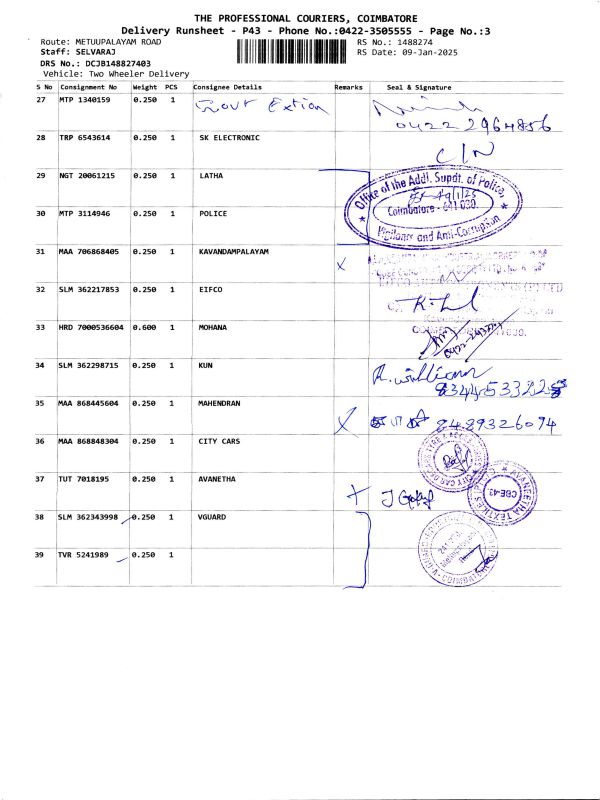 THE PROFESSIONAL COURIERS, COIMBATORE
Delivery Runsheet - P43 - Phone No.:0422-3505555 - Page No.:3
Route: METUUPALAYAM ROAD
Staff: SELVARAJ
DRS No.: DCJB148827403
Vehicle: Two Wheeler Delivery
RS No.: 1488274
RS Date: 09-Jan-2025
S No Consignment No Weight PCS Consignee Details Remarks Seal & Signature
27 MTP 1340159 0.250 1
0422 2964856
28 TRP 6543614 0.250 1 SK ELECTRONIC
29 NGT 20061215 0.250 1 LATHA
Office of the Addl. Supdt. of Police,
Coimbatore - 641 030.
Vigilance and Anti-Corruption
30 MTP 3114946 0.250 1 POLICE
31 MAA 706868405 0.250 1 KAVANDAMPALAYAM X
32 SLM 362217853 0.250 1 EIFCO
33 HRD 7000536604 0.600 1 MOHANA
34 SLM 362298715 0.250 1 KUN
R. William
35 MAA 868445604 0.250 1 MAHENDRAN X
8489326094
36 MAA 868848304 0.250 1 CITY CARS
37 TUT 7018195 0.250 1 AVANETHA
CBE-43
38 SLM 362343998 0.250 1 VGUARD
39 TVR 5241989 0.250 1